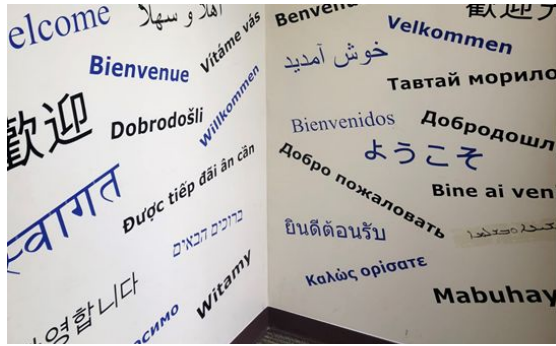 elcome
اهلا و سهلا
Vítáme vás
Bienvenue
Willkommen
歡迎
Dobrodošli
स्वागत
Được tiếp đãi ân cần
ברוכים הבאים
영합니다
Witamy
осимо
Benvenu
歡迎
Velkommen
خوش آمدید
Тавтай морило
Bienvenidos
Добродошл
ようこそ
Добро пожаловать
Bine ai ven
ยินดีต้อนรับ
Καλώς ορίσατε
Mabuhay